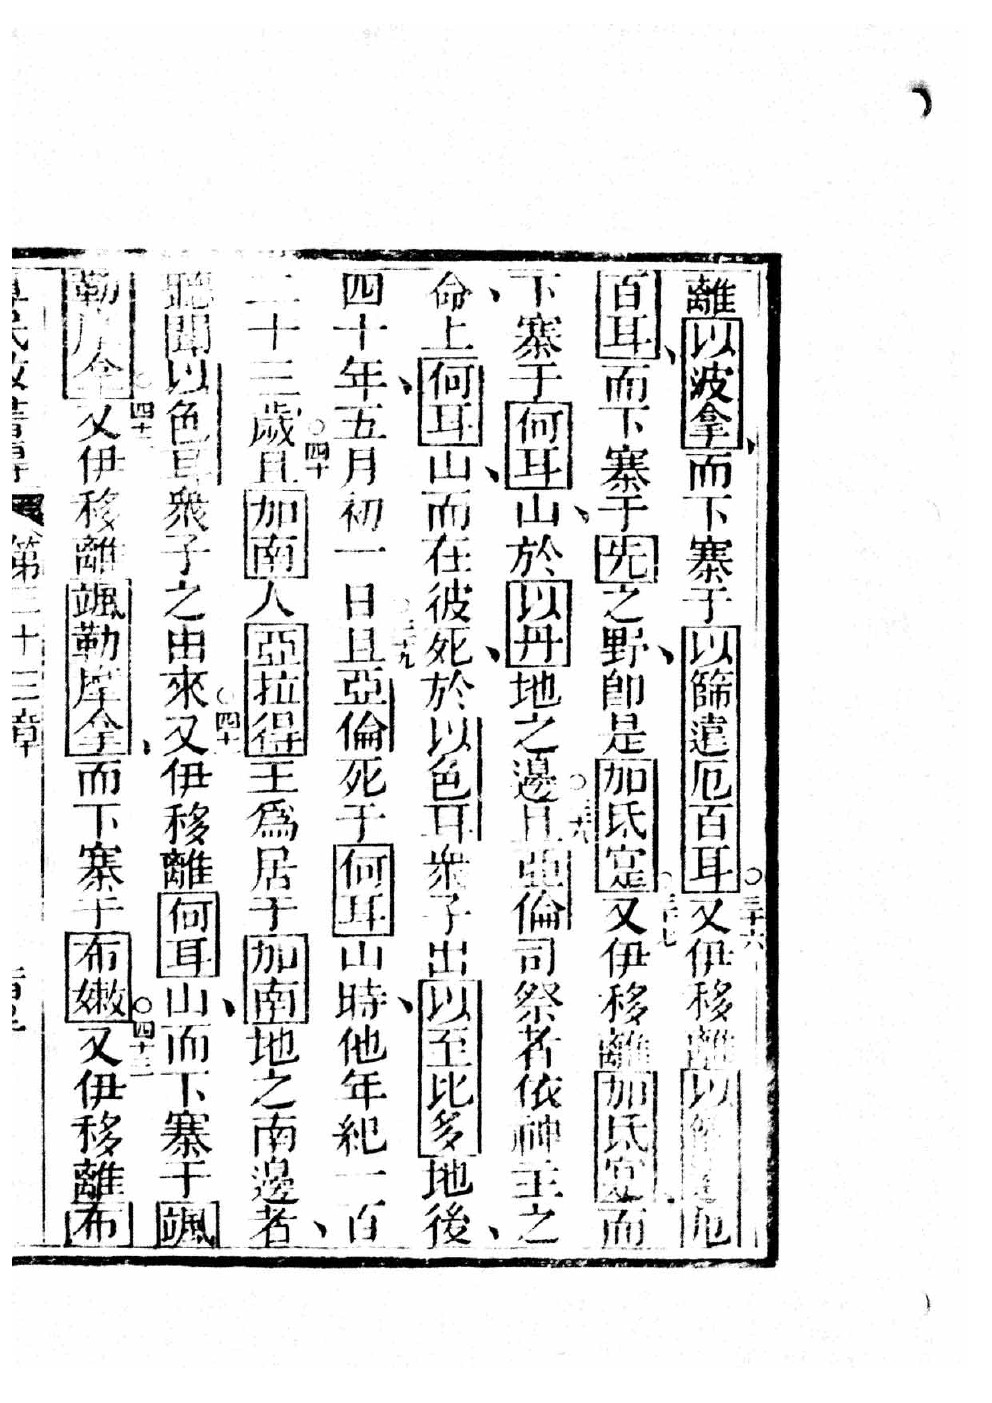 離以波拿、而下寨于以篩遣厄百耳○三十六又伊移離以篩遣厄
百耳、而下寨于先之野、卽是加氐寔○三十七又伊移離加氐寔、而
下寨于何耳山、於以丹地之邊○三十八且亞倫司祭者依神主之
命、上何耳山、而在彼死、於以色耳衆子出以至比多地後、
四十年、五月初一日○三十九且亞倫死于何耳山時、他年紀一百
二十三歲○四十且加南人亞拉得王爲居于加南地之南邊者、
聽聞以色耳衆子之由來○四十一又伊移離何耳山、而下寨于颯
勒摩拿○四十二又伊移離颯勒摩拿、而下寨于布嫩○四十三又伊移離布
第三十三章